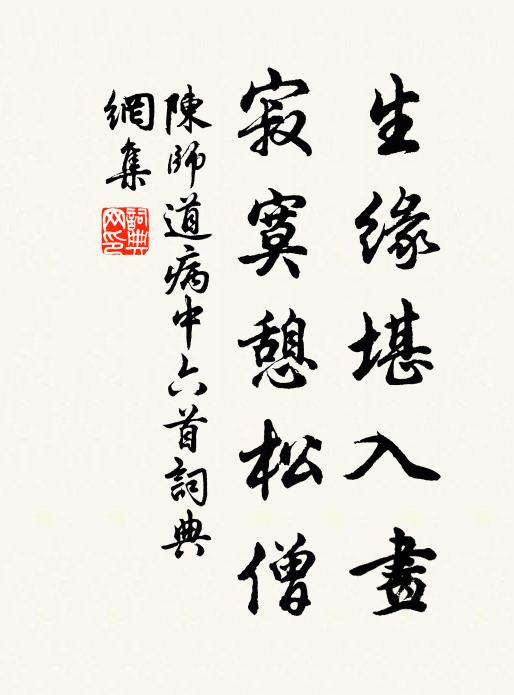 生緣堪入畫
寂寞憩松僧
陳師道病中六首詞典
網集
詞典
网印